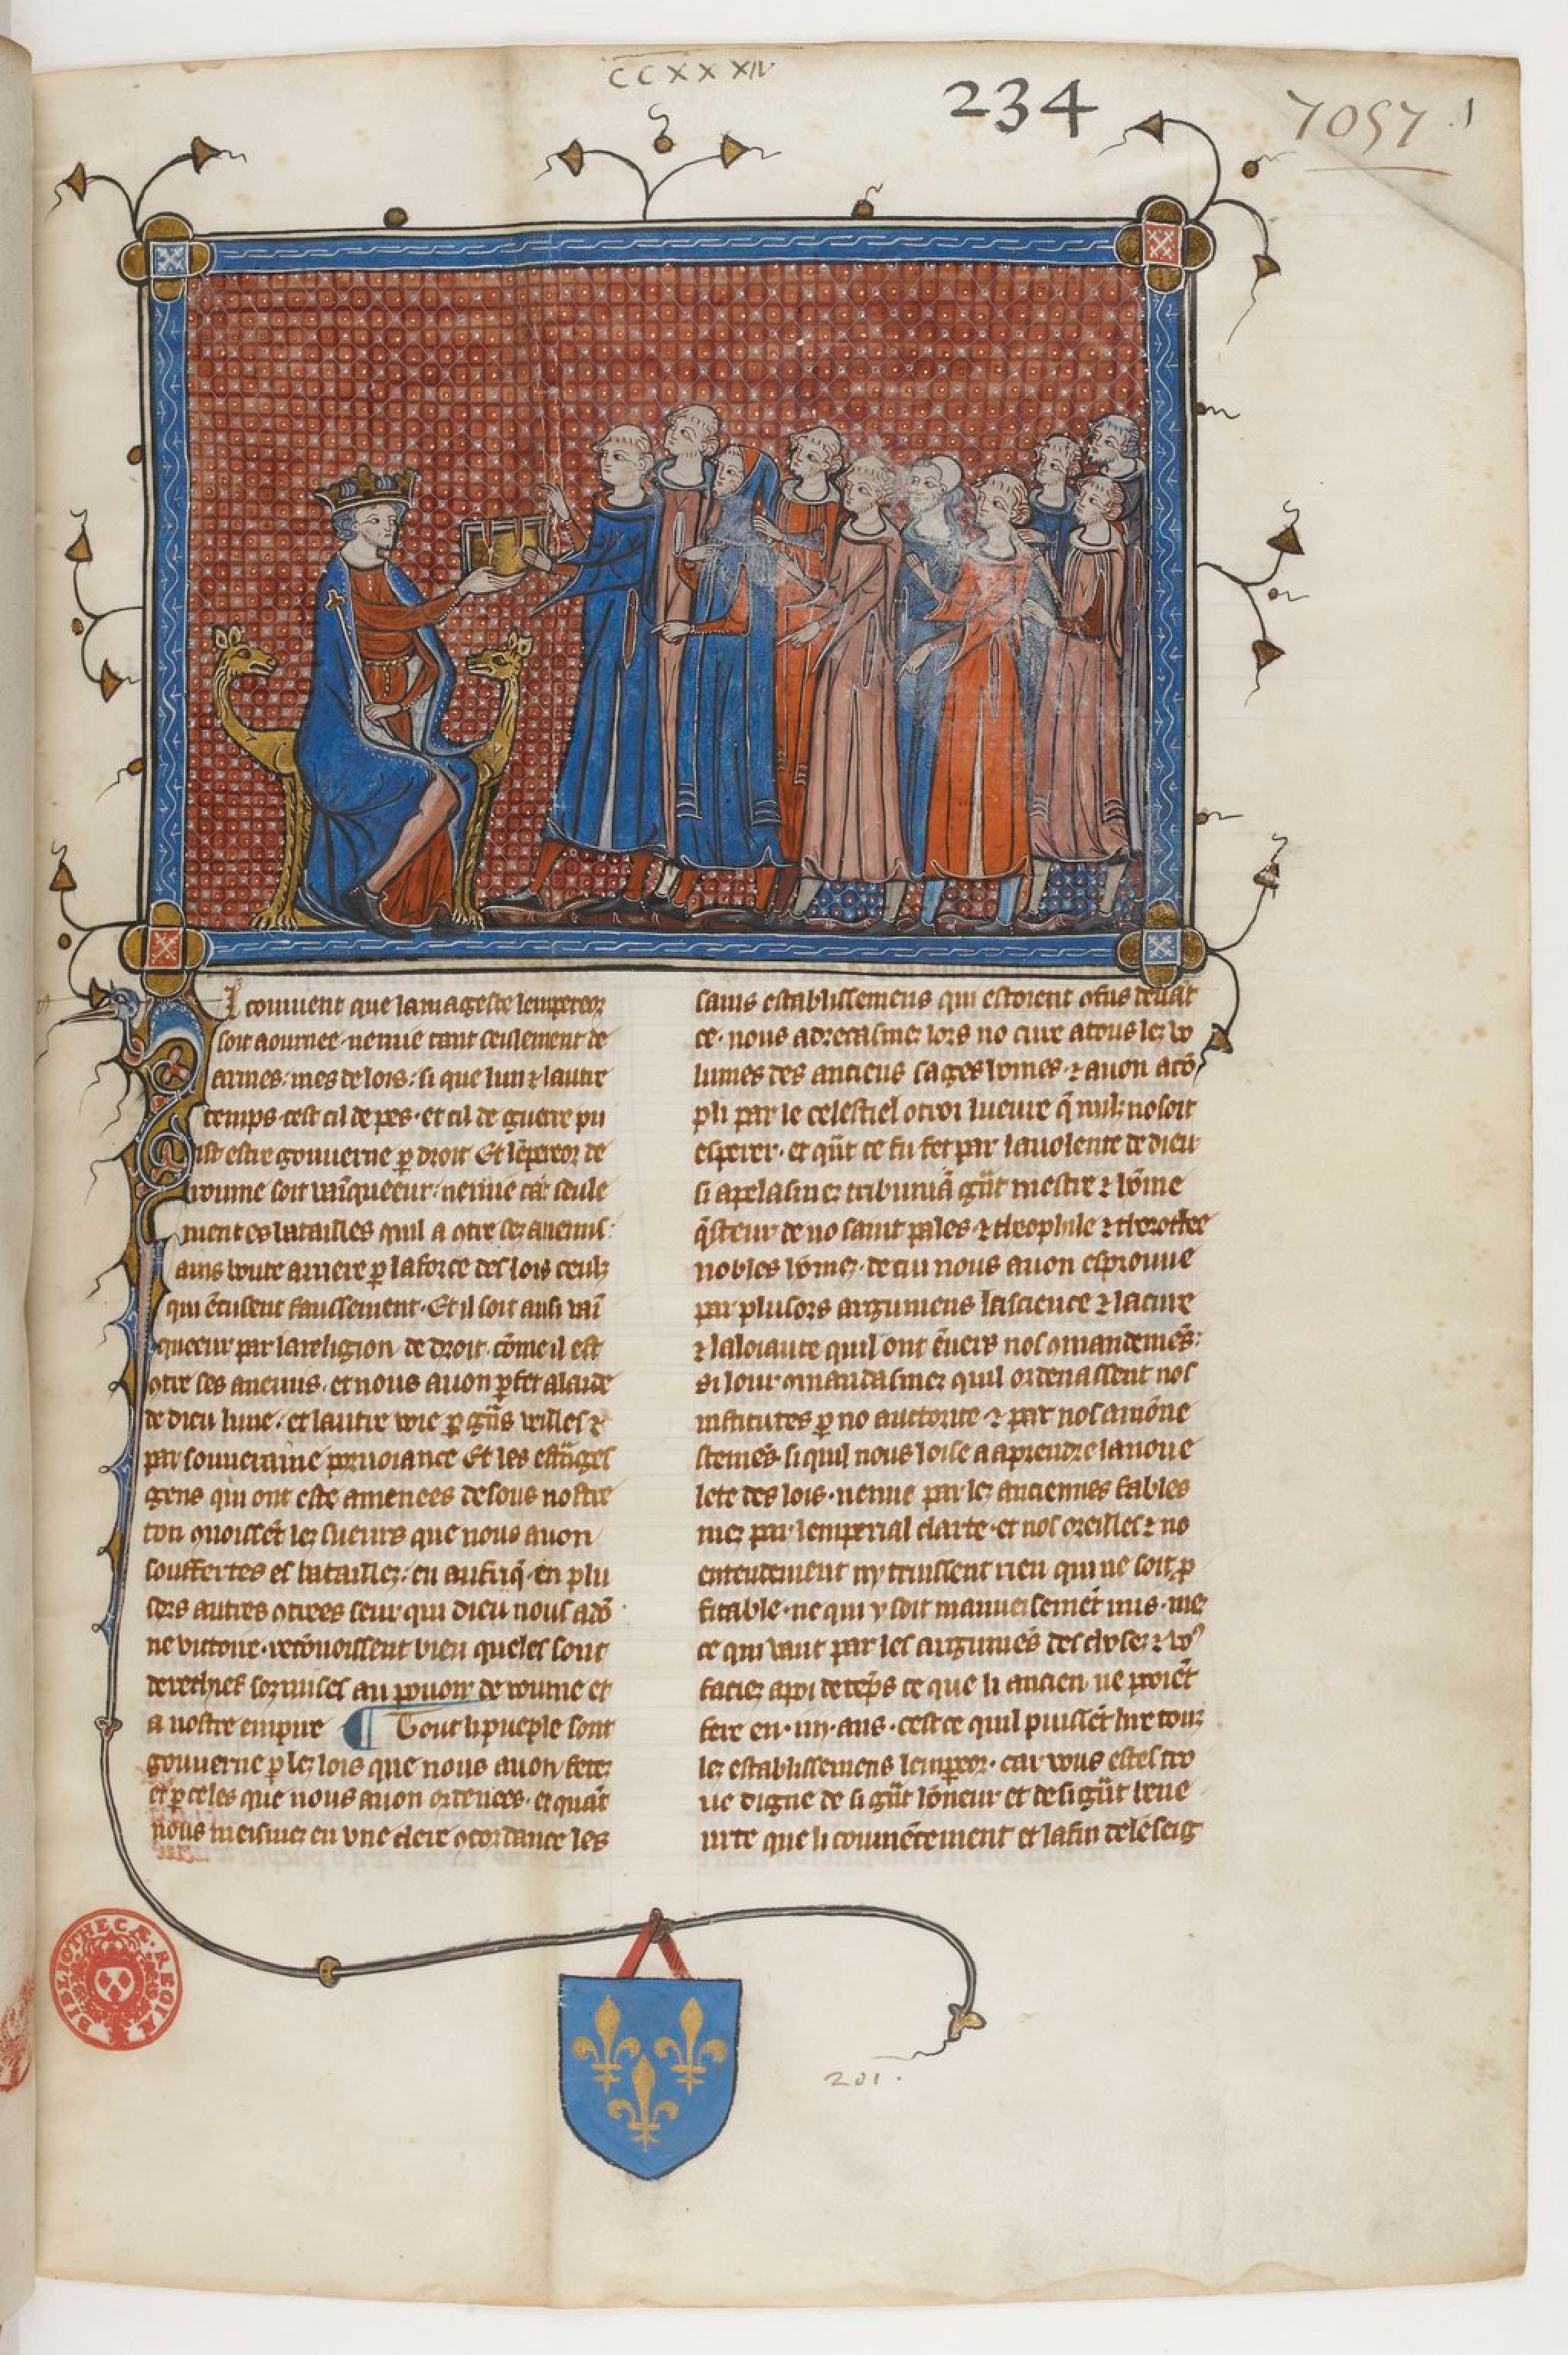 CCXXXIV
234
7057
.1
Il couuient que la mageste lempereor
soit aournee · nemie tant seulement de
armes: mes de lois: si que lun ⁊ lautre
temps · cest cil de pes · et cil de guerre pu
ist estre gouuerne ꝑ droit Et lẽpereor de
roume soit uaĩqueeur: nemie tãt seule
ment es batailles quil a ꝯtre sez anemis:
ains boute arriere ꝑ la force des lois ceulz
qui ẽcusent faussement · Et il soit ausi uaĩ
queeur par la religion de droit · cõme il est
ꝯtre ses anemis · et nous auon ꝑfet a laide
de dieu lune · et lautre uoie ꝑ gñs ueilles ⁊
par souueraine porueiance Et les estãges
gens qui ont este amenees desous nostre
ton ꝯnoissẽt lez sueurs que nous auon
souffertes es batailles: en aufriq̃ · en plu
sors autres ꝯtrees seur qui dieu nous a dõ
ne uictoire · recõnoissent bien queles sont
derechief sozmises au pouoir de roume et
a nostre empire ¶ Tout li pueple sont
gouuerne ꝑ lez lois que nous auon fetez
et ꝑ celes que nous auon ordenees · et quãt
nous meismez en vne clere ꝯcordance les
sains establissemens qui estoient ꝯfus deuãt
ce · nous adrecasmez lors no cure a tous lez vo
lumes des anciens sages homes · ⁊ auon acõ
pli par le celestiel otroi lueure q̃ nulz nosoit
esperer · et qñt ce fu fet par la uolente de dieu
si apelasmez tribuniã gñt mestre ⁊ hõme
q̃steur de no saint pales · ⁊ theophile ⁊ therothee
nobles hõmez · de cui nous auon esprouue
par plusors argumens la science ⁊ la cure
⁊ la loiaute quil ont ẽuers nos ꝯmandemẽs:
si lour ꝯmandasmez quil ordenassent nos
institutes ꝑ no auctorite · ⁊ par nos amõne
stemẽs · si quil nous loise a aprendre la noue
lete des lois · nemie par lez anciennes fables
mez par lemperial clarte · et nos oreilles ⁊ no
entendement ny truissent rien qui ne soit ꝓ
fitable · ne qui y soit mauueisemẽt mis · mez
ce qui uaut par les argumẽs des choses ⁊ vo9
faciez a poi de tẽps ce que li ancien ne poiẽt
fere en · iiij · ans · cest ce quil puissẽt lire touz
lez establissemens lemꝑeor · car vous estes tro
ue digne de si gñt hõneur et de si gñt bene
urte que li coumẽcement et la fin de lẽseig
BIBLIOTHECÆ REGIÆ
201.